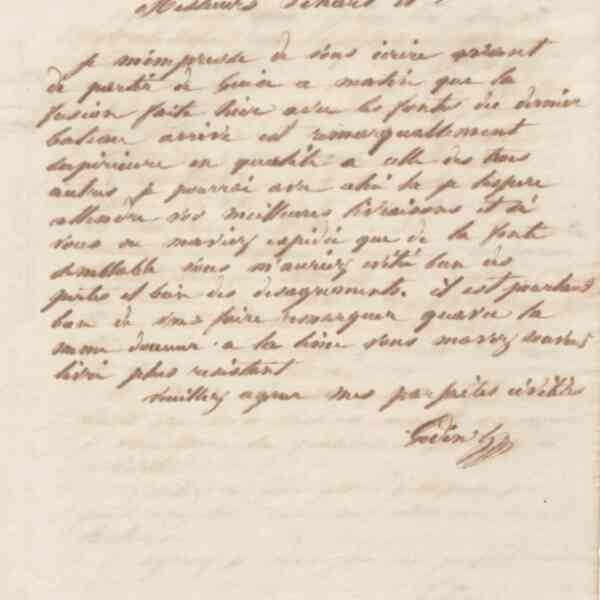 Messieurs
je mempresse de vous écrire avant
de partir de Guise ce matin que la
fusion faite hier avec les fontes du dernier
bateau arrivé est remarquablement
supérieure en qualité a celle des trois
autres je pourrai avec cela je lespere
attendre vos meilleures livraisons et si
vous ne maviez expédié que de la fonte
semblable vous m'auriez évité bien des
pertes et bien des desagrements. il est pourtant
bon de vous faire remarquer quavec la
meme douceur a la lime vous mavez souvent
livré plus resistant
veuillez agreer mes parfaites civilités
Godin